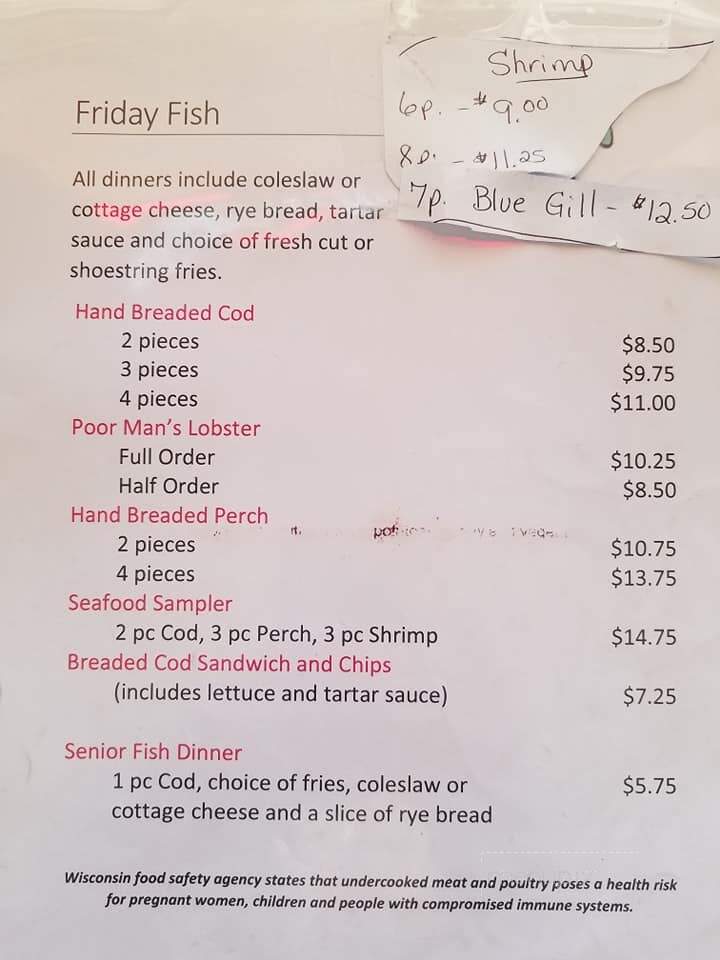 Shrimp
6p. - $9.00
8p. - $11.25
7p. Blue Gill - $12.50
Friday Fish
All dinners include coleslaw or
cottage cheese, rye bread, tartar
sauce and choice of fresh cut or
shoestring fries.
Hand Breaded Cod
2 pieces $8.50
3 pieces $9.75
4 pieces $11.00
Poor Man's Lobster
Full Order $10.25
Half Order $8.50
Hand Breaded Perch
2 pieces $10.75
4 pieces $13.75
Seafood Sampler
2 pc Cod, 3 pc Perch, 3 pc Shrimp $14.75
Breaded Cod Sandwich and Chips
(includes lettuce and tartar sauce) $7.25
Senior Fish Dinner
1 pc Cod, choice of fries, coleslaw or $5.75
cottage cheese and a slice of rye bread
Wisconsin food safety agency states that undercooked meat and poultry poses a health risk
for pregnant women, children and people with compromised immune systems.